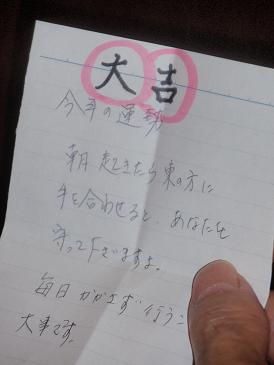 大吉
今年の運勢
朝起きたら東の方に
手を合わせると、あなたを
守って下さいますよ。
毎日かかさず行うこ
大事です。